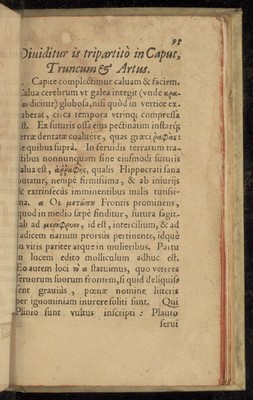 95
Diuiditur is tripartitò in Caput,
Truncum & Artus.
Capite complectimur caluam & faciem.
Calua cerebrum vt galea integit (vnde
dicitur) globosa, nisi quòd in vertice ex-
uberat, circa tempora vtrinq; compressa
est. Ex suturis ossa eius pectinatim instarq;
serræ dentatæ coaluere, quas græci ῥαφὰς:
de quibus suprà. In feruidis terrarum tra-
ctibus nonnunquam sine eiusmodi suturis
calua est, ἀῤῥαφὴς, qualis Hippocrati sana
putatur, nempè firmissima, & ab iniurijs
& extrinsecùs imminentibus malis tutissi-
ma. a Os μετώπου Frontis prominens,
quod in medio sæpè finditur, sutura sagit-
tali ad μεσόφρυον, id est, intercilium, & ad
radicem narium prorsùs pertinente, idquè
in viris pariter atque in mulieribus. Partu
in lucem edito molliculum adhuc est.
Eo autem loci τὸ a statuimus, quo veteres
seruorum suorum frontem, si quid deliquis-
sent grauiùs, pœnæ nomine litteris
per ignominiam inurere soliti sunt. Qui
Plinio sunt vultus inscripti: Plauto
serui